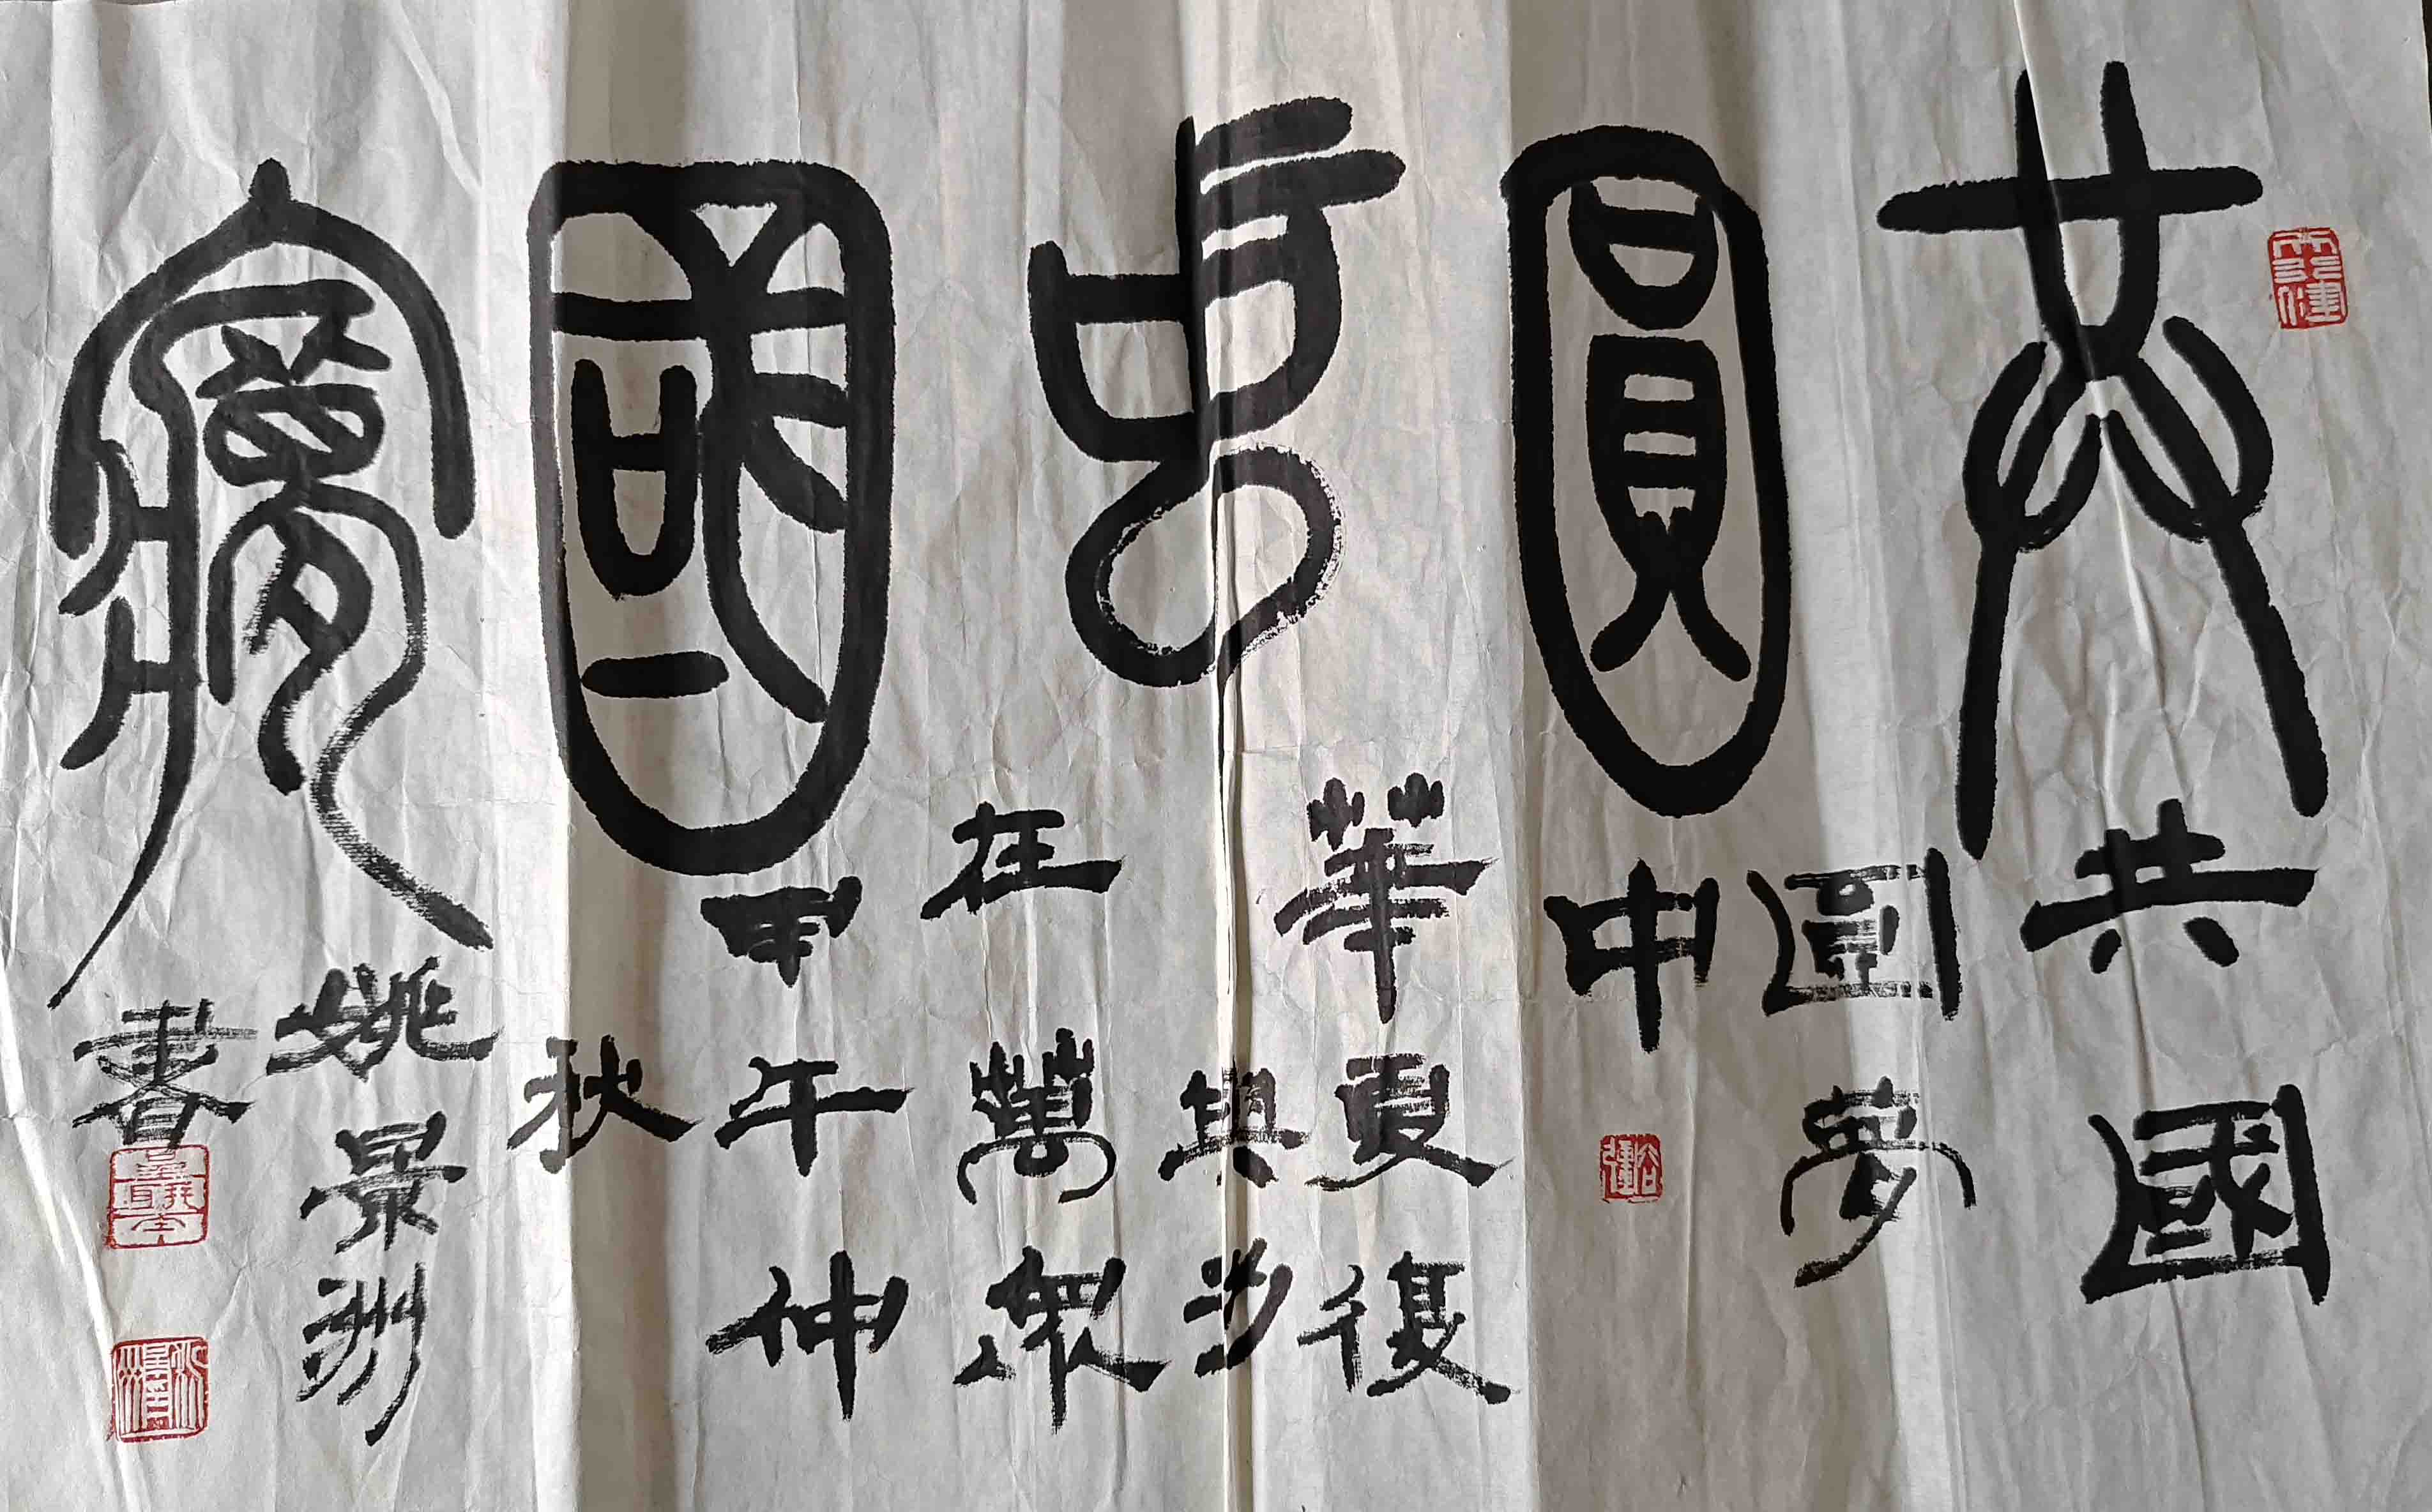 共圓中國夢
共國
圓夢
中
華夏復
興
在萬眾
甲午仲
秋
姚景洲
書